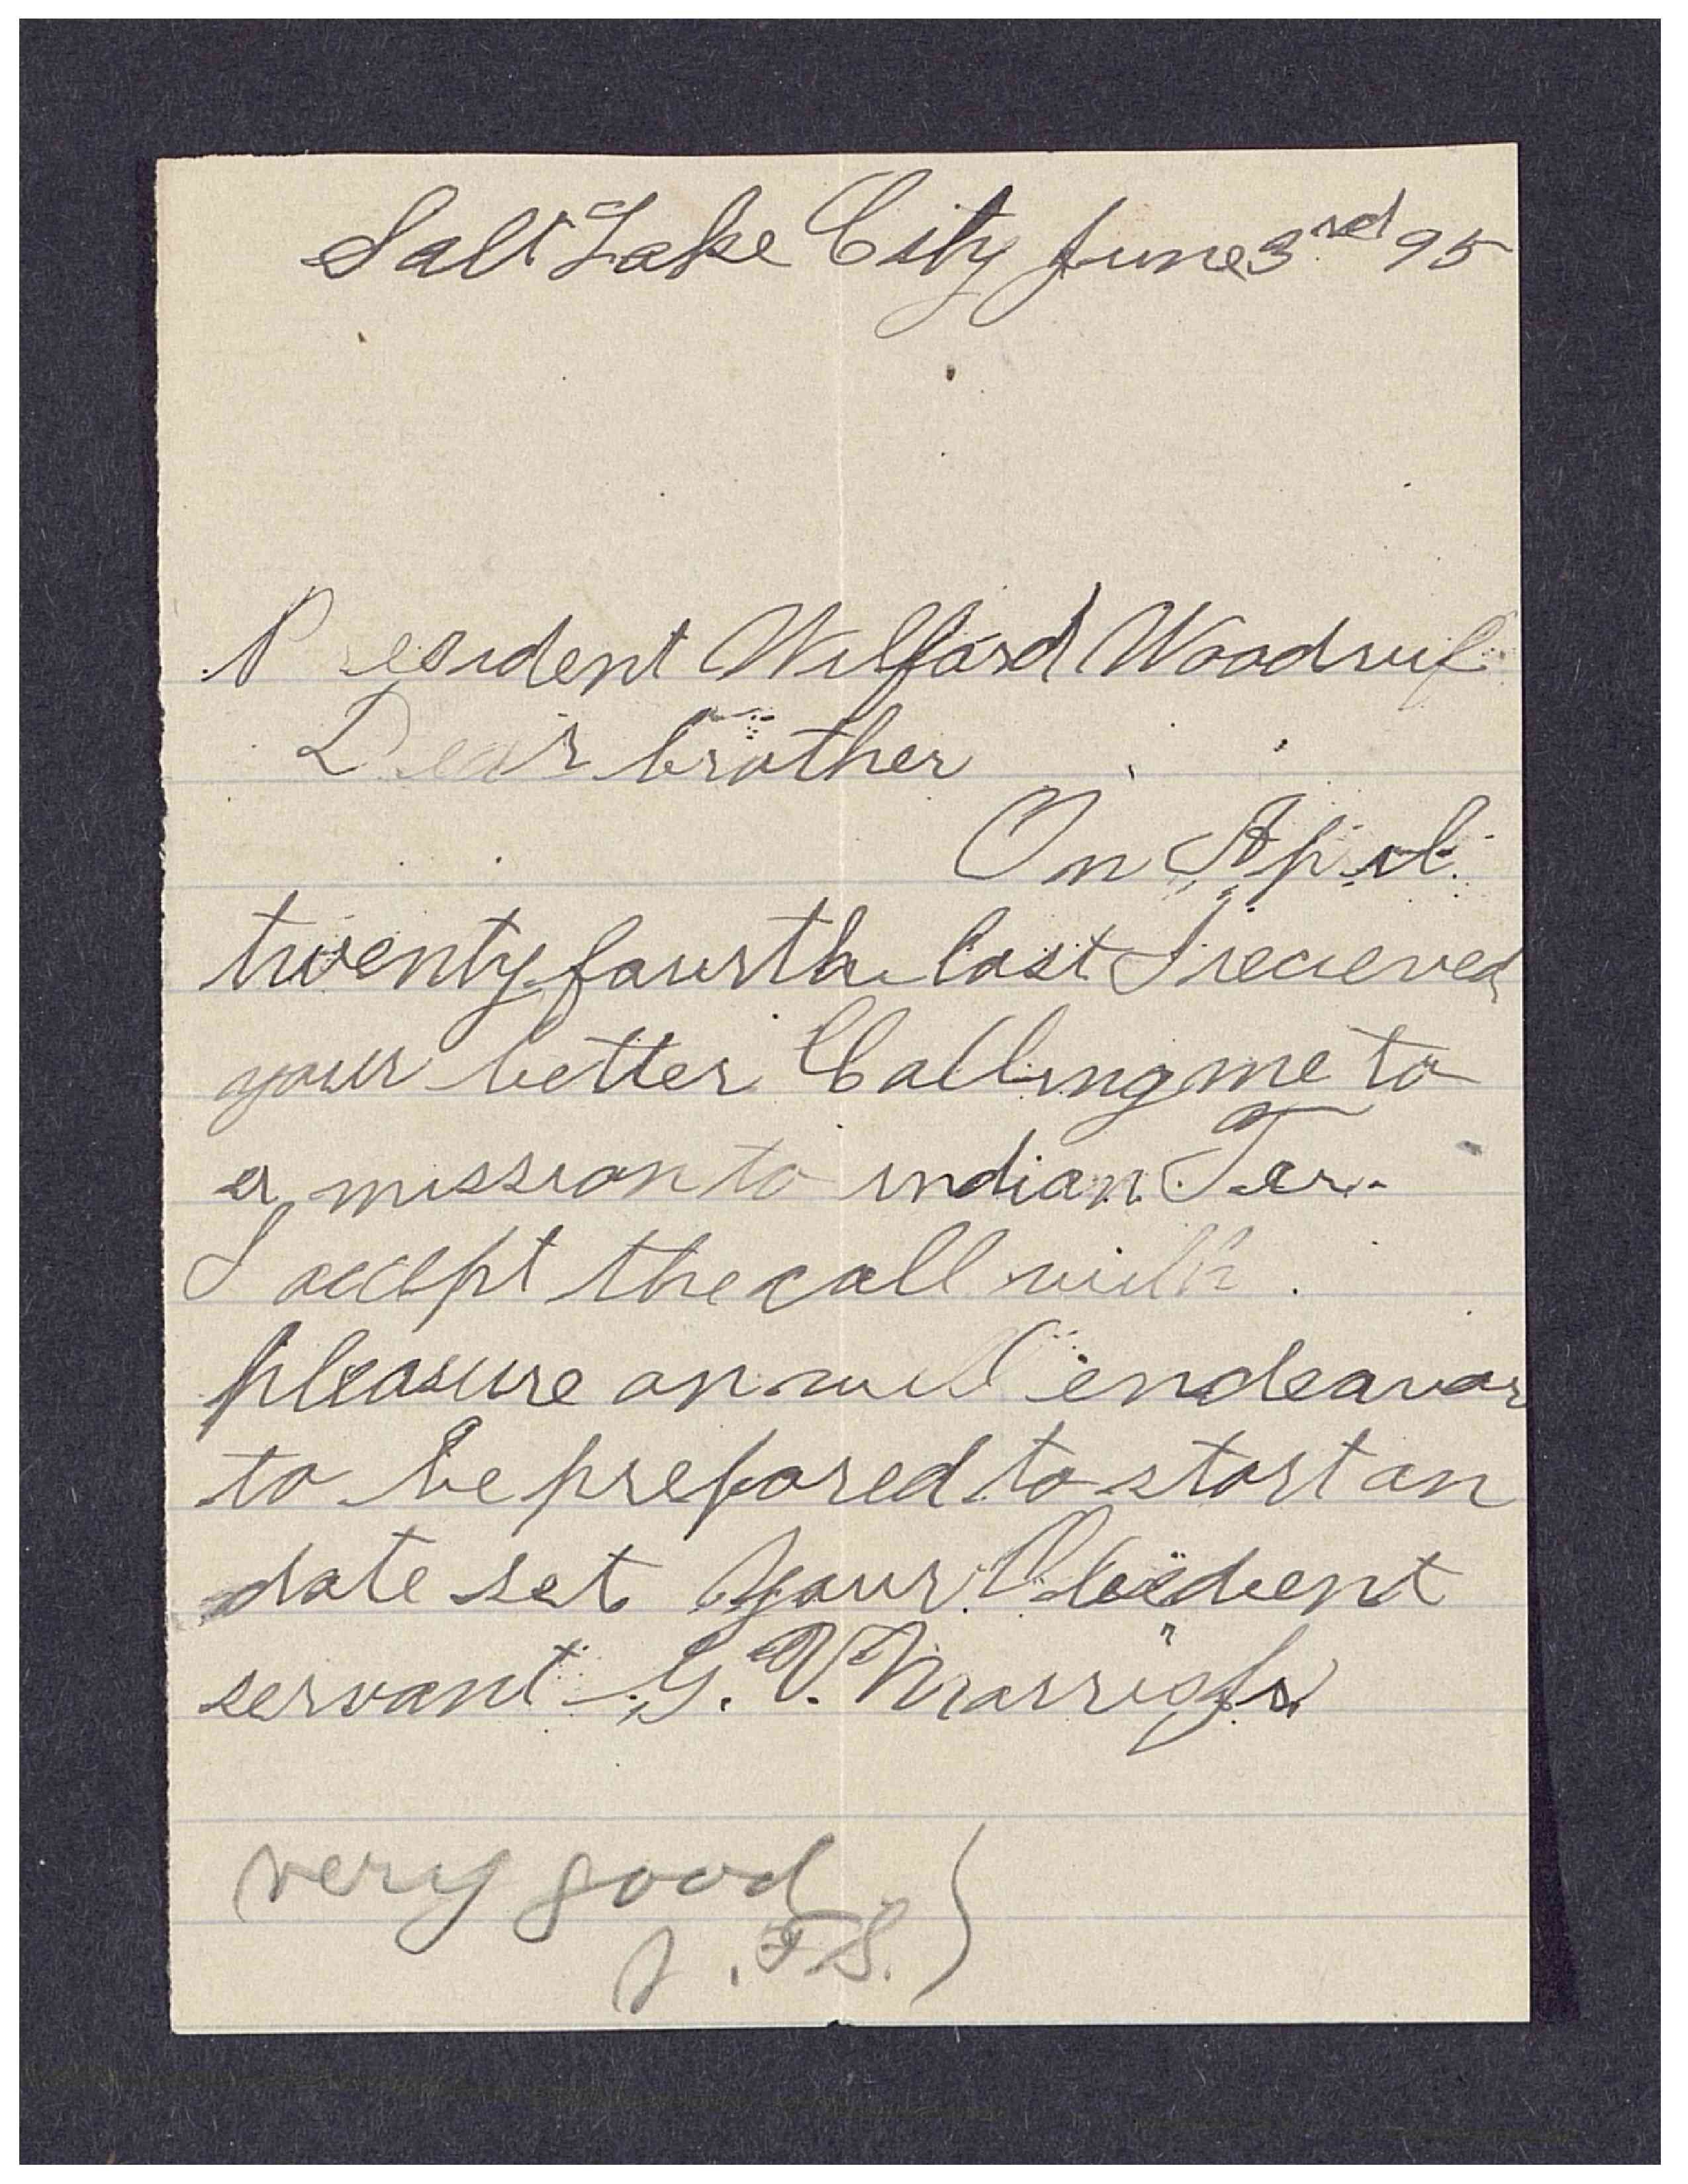 Salt Lake City June 3rd 95
President Wilford Woodruf
Dear brother
On April
twenty fourth last I recieved
your letter Calling me to
a mission to indian Ter.
I accept the call with
pleasure an will endeavor
to be prepared to start on
date set your Obedient
servant G. V. Morris Jr.
very good
J. F. S.